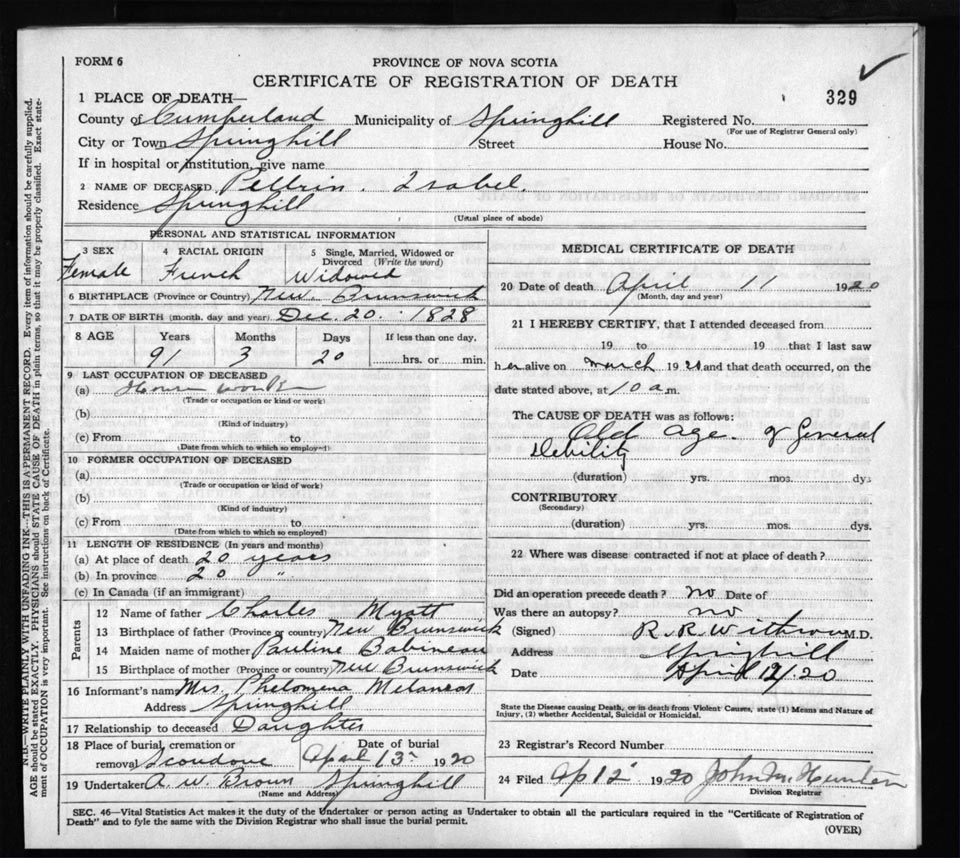 FORM 6
PROVINCE OF NOVA SCOTIA
CERTIFICATE OF REGISTRATION OF DEATH
329
1 PLACE OF DEATH—
County of Cumberland Municipality of Springhill Registered No.
(For use of Registrar General only)
City or Town Springhill Street House No.
If in hospital or institution, give name
2 NAME OF DECEASED Pellrin. Isabel.
Residence Springhill
(Usual place of abode)
PERSONAL AND STATISTICAL INFORMATION
3 SEX 4 RACIAL ORIGIN 5 Single, Married, Widowed or
Divorced (Write the word)
Female French Widowed
6 BIRTHPLACE (Province or Country) New Brunswick
7 DATE OF BIRTH (month, day and year) Dec. 20. 1828
8 AGE Years Months Days If less than one day,
91 3 20 hrs. or min.
9 LAST OCCUPATION OF DECEASED
(a)
(Trade or occupation or kind or work)
(b)
(Kind of industry)
(c) From to
(Date from which to which so employed)
10 FORMER OCCUPATION OF DECEASED
(a)
(Trade or occupation or kind of work)
(b)
(Kind of industry)
(c) From to
(Date from which to which so employed)
11 LENGTH OF RESIDENCE (In years and months)
(a) At place of death 20 years
(b) In province 20 "
(c) In Canada (if an immigrant)
Parents
12 Name of father Charles Myatt
13 Birthplace of father (Province or country) New Brunswick
14 Maiden name of mother Pauline Babineau
15 Birthplace of mother (Province or country) New Brunswick
16 Informant's name Mrs. Phelomena Melanson
Address Springhill
17 Relationship to deceased Daughter
18 Place of burial, cremation or Date of burial
removal Scoudouc April 13 1920
19 Undertaker A. W. Brown Springhill
(Name and Address)
MEDICAL CERTIFICATE OF DEATH
20 Date of death April 11 1920
(Month, day and year)
21 I HEREBY CERTIFY, that I attended deceased from
19 to 19 that I last saw
her alive on March 1920 and that death occurred, on the
date stated above, at 10 a m.
The CAUSE OF DEATH was as follows:
Old age. & General
Debility
(duration) yrs. mos. dys
CONTRIBUTORY
(Secondary)
(duration) yrs. mos. dys.
22 Where was disease contracted if not at place of death?
Did an operation precede death? no Date of
Was there an autopsy? no
(Signed) R. R. Withrow M.D.
Address Springhill
Date April 12/20
State the Disease causing Death, or is death from Violent Causes, state (1) Means and Nature of
Injury, (2) whether Accidental, Suicidal or Homicidal.
23 Registrar's Record Number
24 Filed Ap 12 1920 John
Division Registrar
SEC. 46—Vital Statistics Act makes it the duty of the Undertaker or person acting as Undertaker to obtain all the particulars required in the "Certificate of Registration of
Death" and to fyle the same with the Division Registrar who shall issue the burial permit.
(OVER)
N.B.—WRITE PLAINLY WITH UNFADING INK—THIS IS A PERMANENT RECORD. Every item of information should be carefully supplied.
AGE should be stated EXACTLY. PHYSICIANS should STATE CAUSE OF DEATH in plain terms, so that it may be properly classified. Exact state-
ment of OCCUPATION is very important. See instructions on back of Certificate.